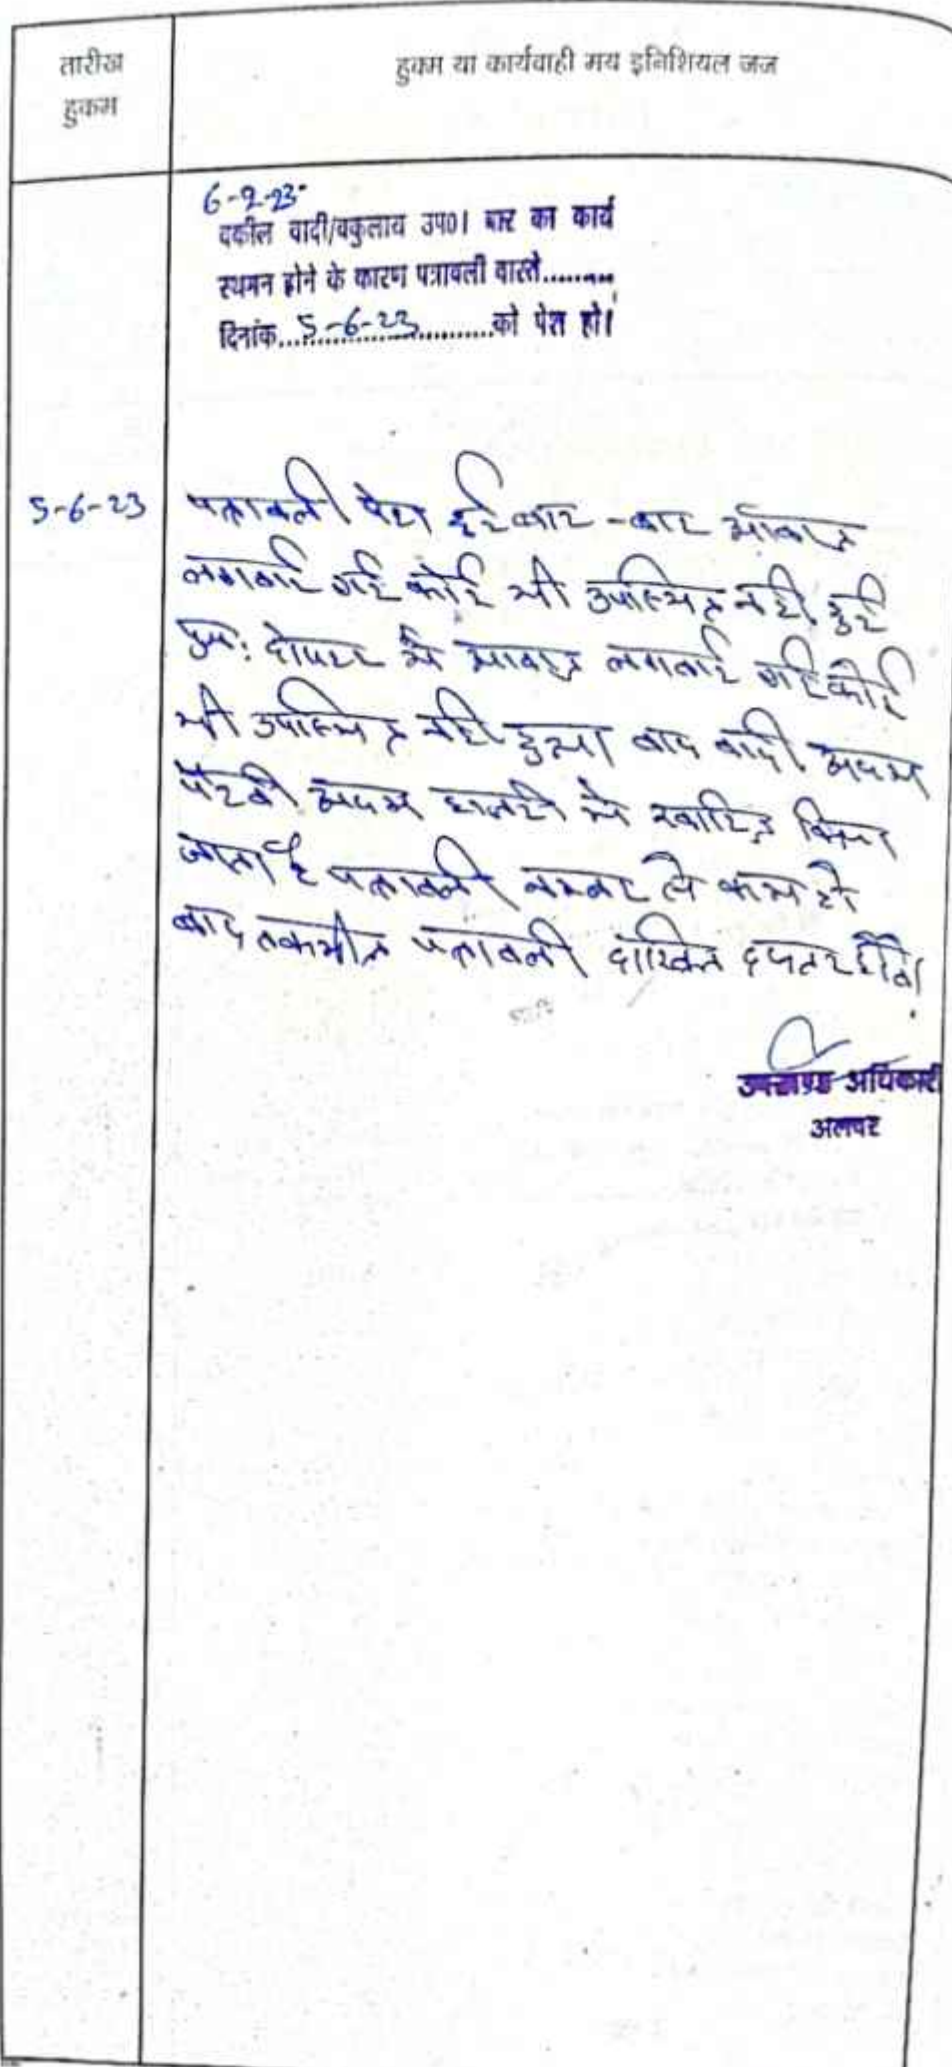 तारीख
हुकम
हुक्म या कार्यवाही मय इनिशियल जज
6-2-23
वकील वादी/वकुलाय उप०। बार का कार्य
स्थगन होने के कारण पत्रावली वास्ते.........
दिनांक...5-6-23...........को पेश हो।
5-6-23
पत्रावली पेश हुई बार-बार आवाज
लगवाई गई कोई भी उपस्थित नही हुई
पुन: दोपहर मे आवाज लगवाई गई कोई
भी उपस्थित नही हुआ वाद वादी अदम
पैरवी अदम हाजरी मे खारिज किया
जाता है पत्रावली नम्बर से कम हो
बाद तकमील पत्रावली दाखिल दफ्तर होवे।
उपखण्ड अधिकारी
अलवर